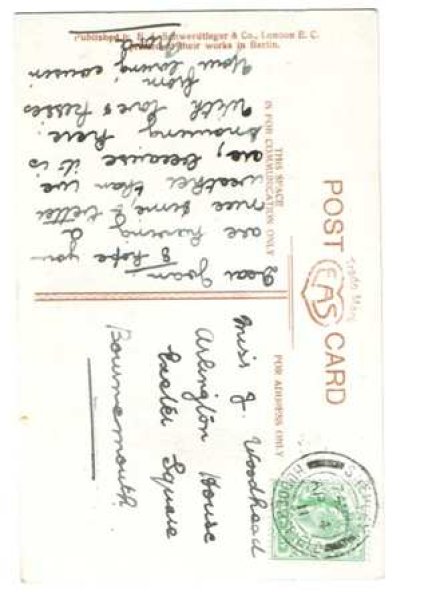 POST CARD
EAS
Trade Mark
THIS SPACE
IS FOR COMMUNICATION ONLY
FOR ADDRESS ONLY
Dear Joan
I hope you
are having a
nice time, & better
weather than we
are, because it is
snowing here.
With love & kisses
from
Your loving cousin
Miss J. Woodhead
Arlington House
Exeter Square
Bournemouth
Published by E. A. Schwerdtfeger & Co., London E. C.
Printed at their works in Berlin.
AP 4
11